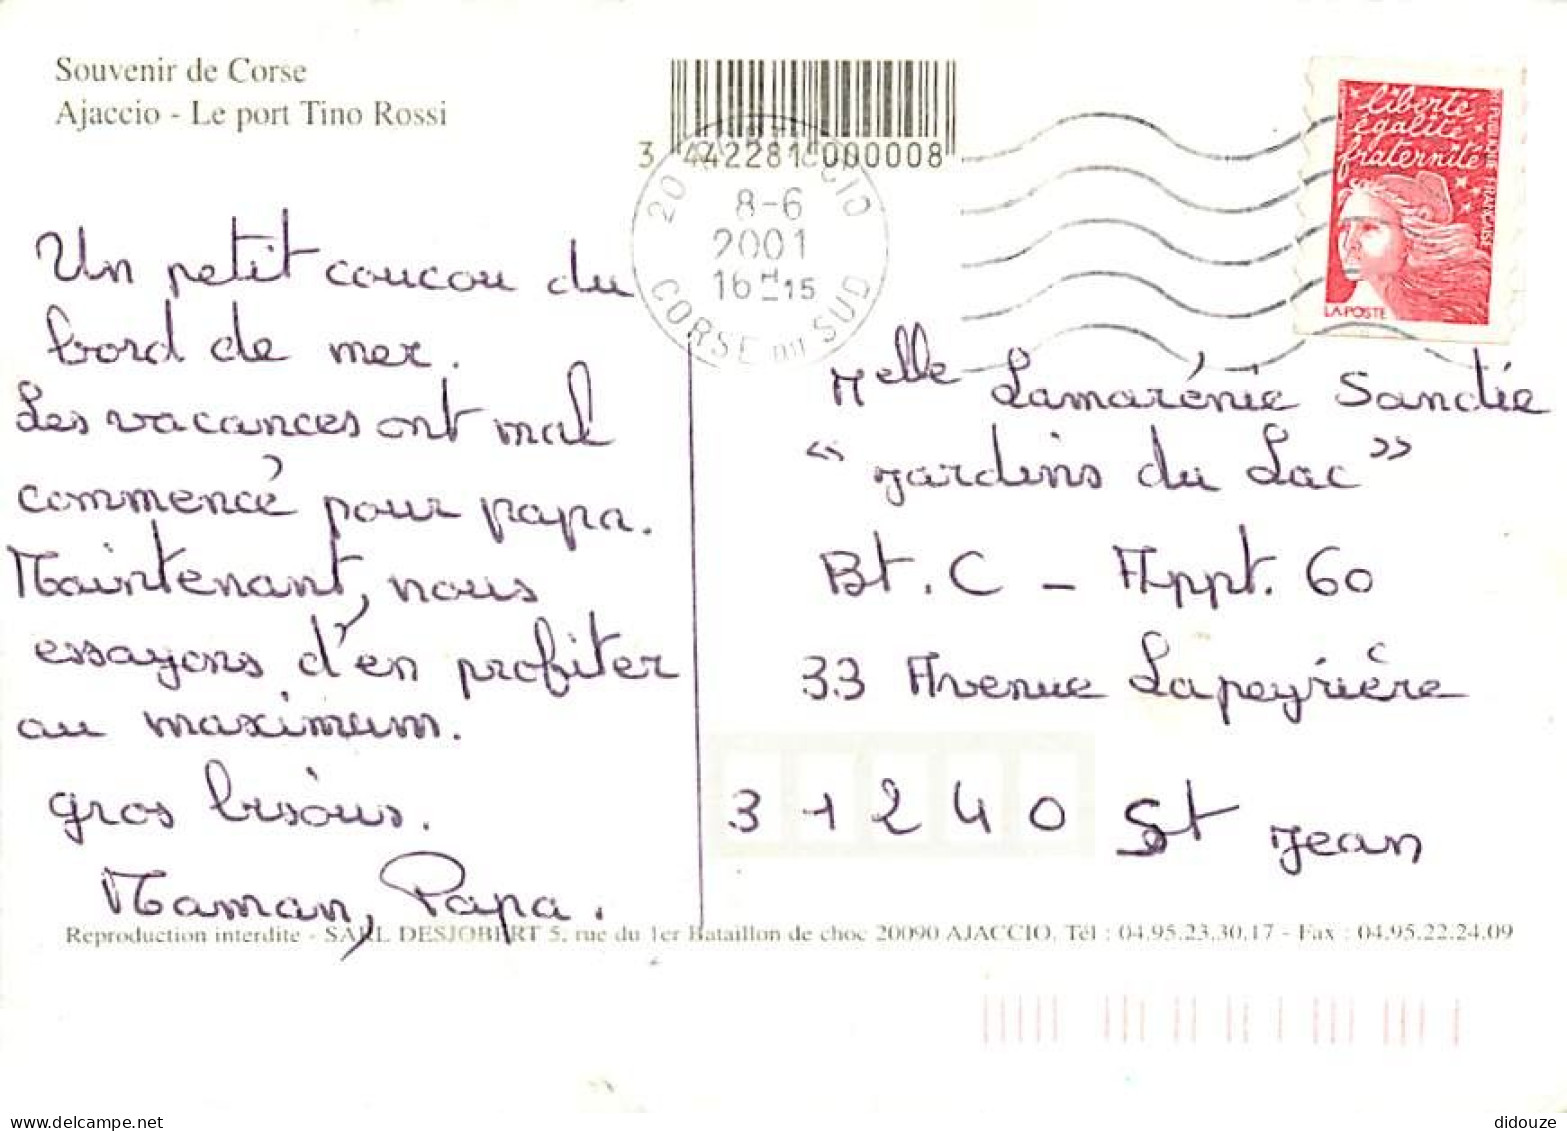 Souvenir de Corse
Ajaccio - Le port Tino Rossi
3 442281 000008
20
CIO
8-6
2001
16 H 15
CORSE DU SUD
liberté
égalité
fraternité
RÉPUBLIQUE FRANÇAISE
LA POSTE
Un petit coucou du
bord de mer.
Les vacances ont mal
commencé pour papa.
Maintenant, nous
essayons d'en profiter
au maximum.
gros bisous.
Maman, Papa.
Melle Lamarénie Sandie
"Jardins du Lac"
Bt. C - Appt. 60
33 Avenue Lapeyrière
31240 St Jean
Reproduction interdite - SARL DESJOBERT 5, rue du 1er Bataillon de choc 20090 AJACCIO. Tél : 04.95.23.30.17 - Fax : 04.95.22.24.09
didouze